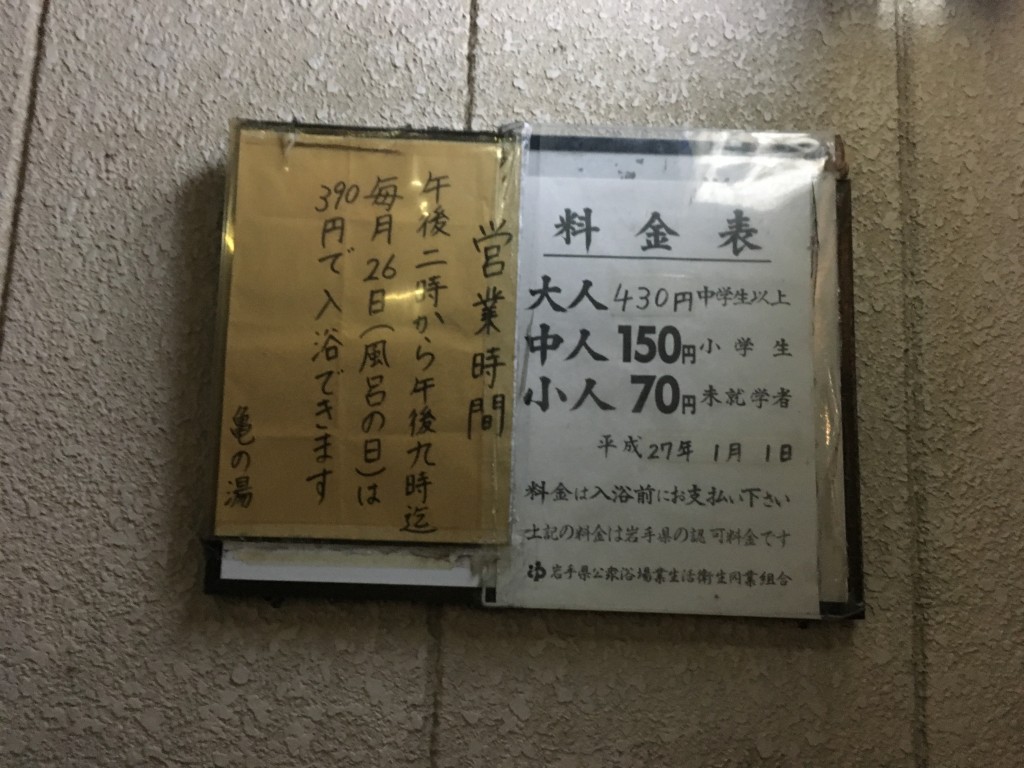 営業時間
午後二時から午後九時迄
毎月26日(風呂の日)は
390円で入浴できます
亀の湯
料金表
大人430円中学生以上
中人150円小学生
小人70円未就学者
平成27年1月1日
料金は入浴前にお支払い下さい
上記の料金は岩手県の認可料金です
岩手県公衆浴場業生活衛生同業組合